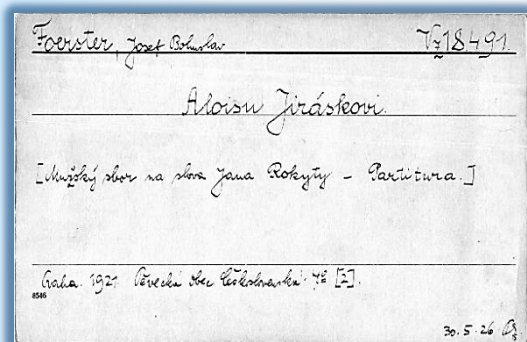 Foerster, Josef Bohuslav Vz18491.
Aloisu Jiráskovi.
[Mužský sbor na slova Jana Rokyty – Partitura.]
Praha. 1921 Pěvecká obec Českoslovanská. 4º [2].
8546
30.5.26